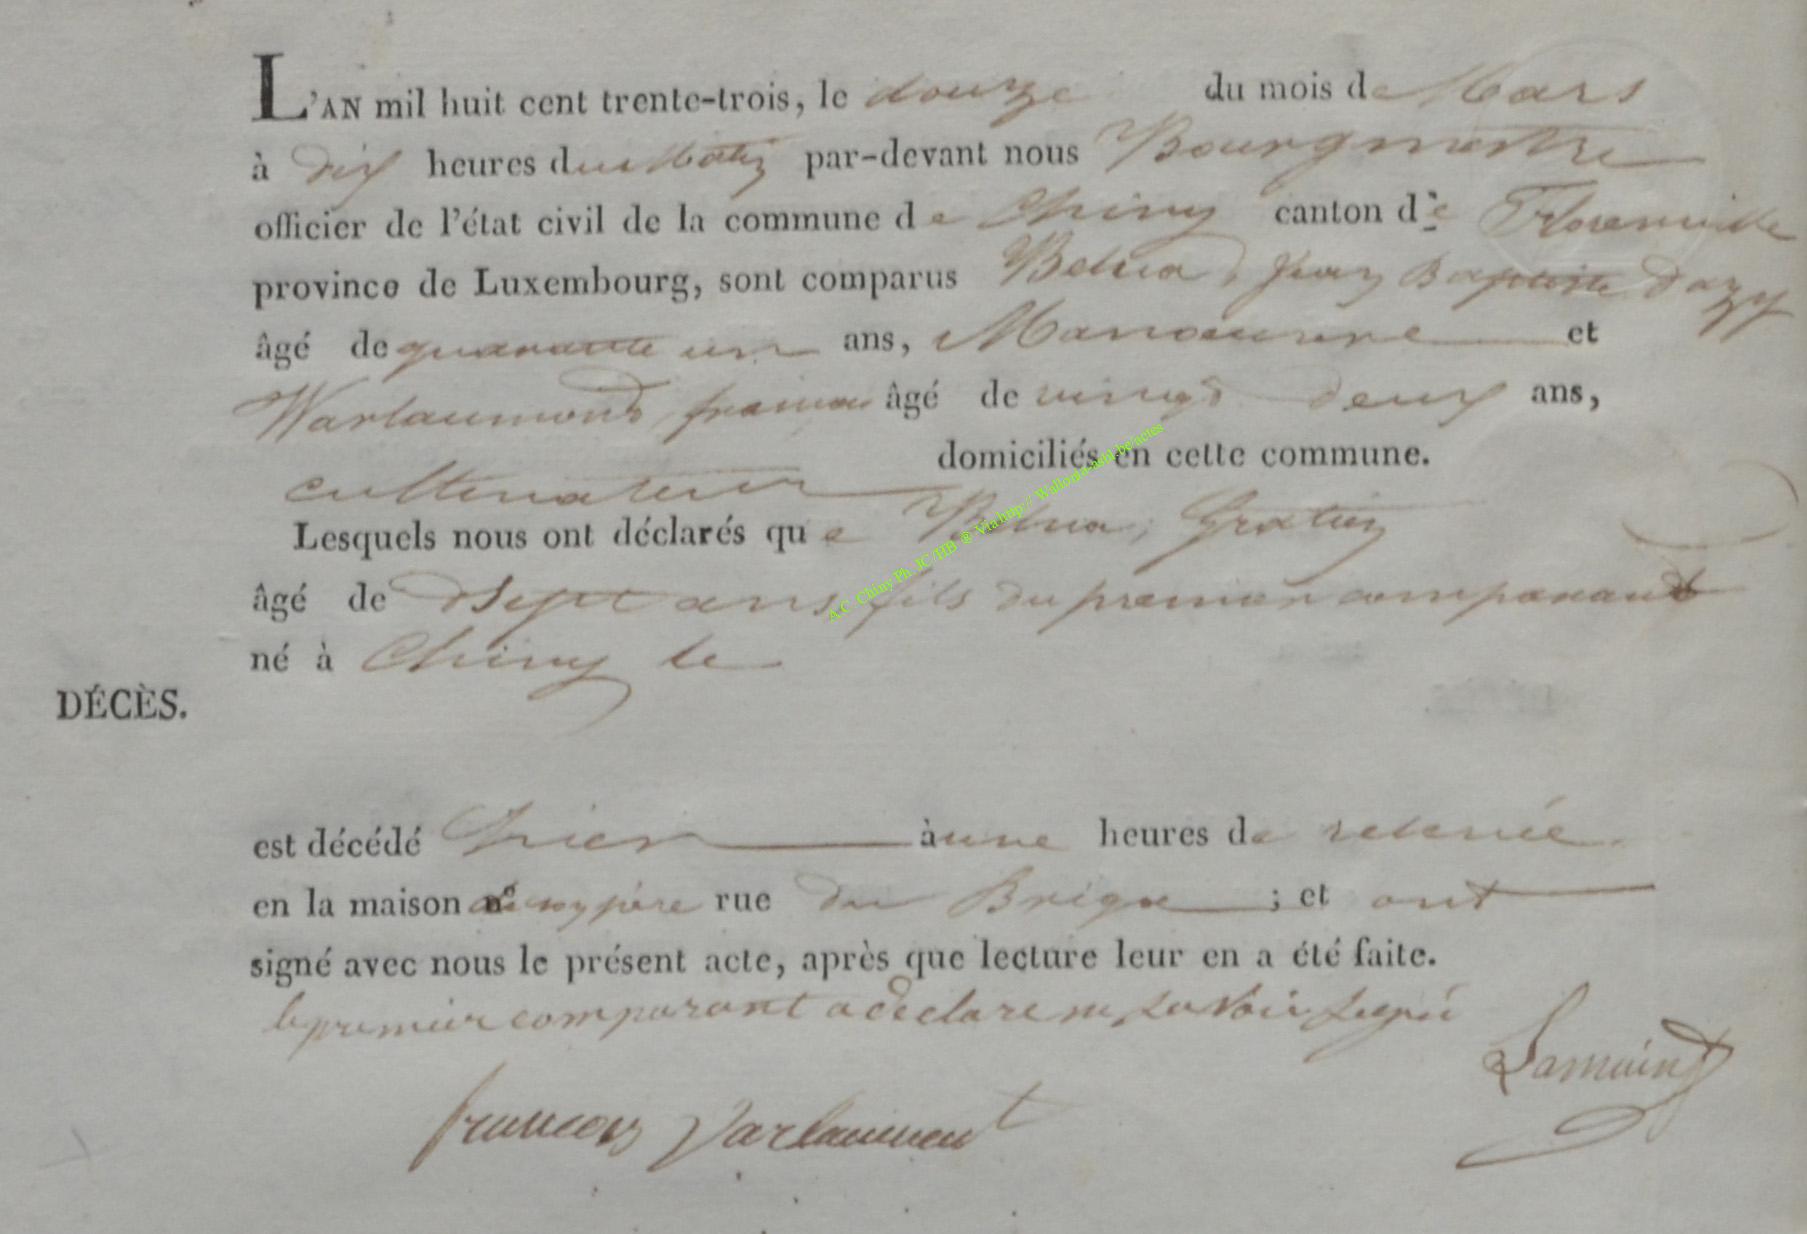 L'AN mil huit cent trente-trois, le douze du mois de Mars
à dix heures du Matin par-devant nous Bourgmestre
officier de l'état civil de la commune de Chiny canton de Florenville
province de Luxembourg, sont comparus Belva, Jean Baptiste Dazy
âgé de quarante un ans, Manoeuvre et
Warlaumond, francois âgé de vingt deux ans,
cultivateur domiciliés en cette commune.
Lesquels nous ont déclarés que Belva, Gratien
âgé de sept ans fils du premier comparant
né à Chiny le
DÉCÈS.
est décédé hier à une heures de relevée
en la maison de son père rue du Brique ; et ont
signé avec nous le présent acte, après que lecture leur en a été faite.
le premier comparant a déclaré ne savoir signé
Lamain
francois Varlaumont
A.C. Chiny Ph. JC/HB @ Via http://Wallonia-asbl.be/actes